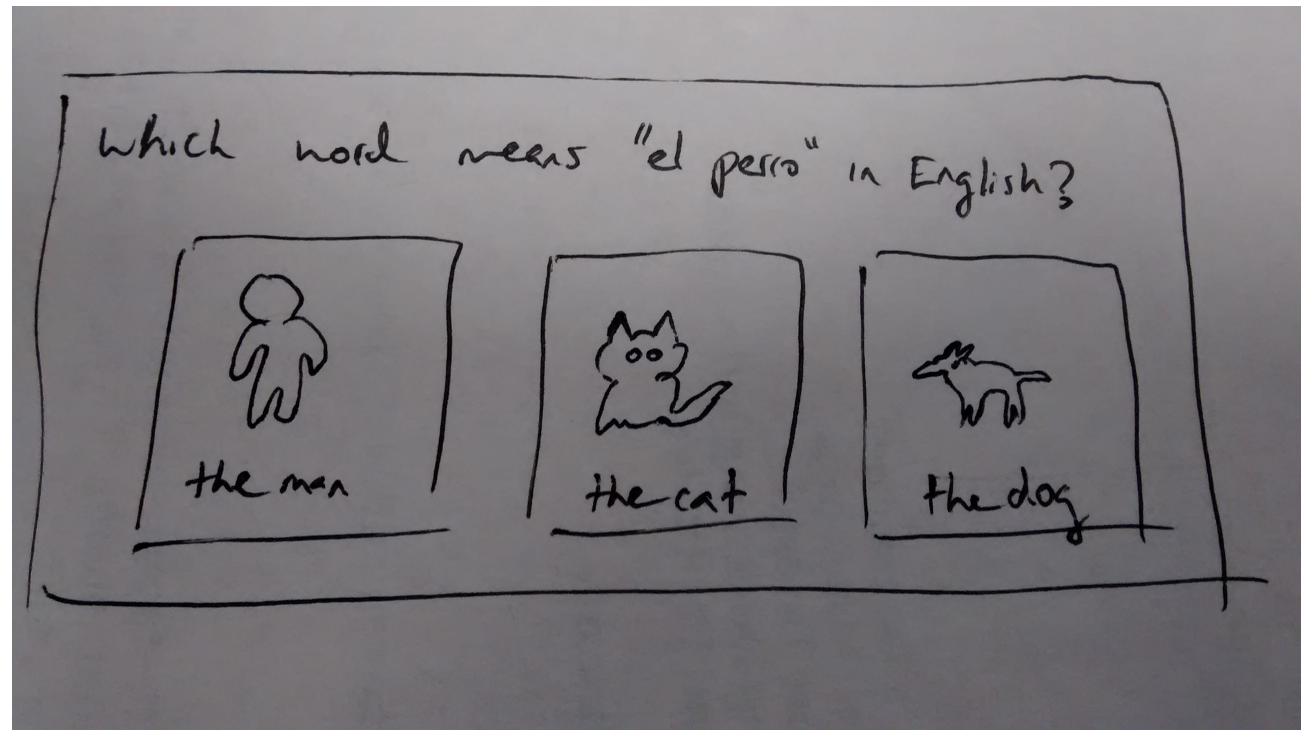 Which word means "el perro" in English?
the man
the cat
the dog